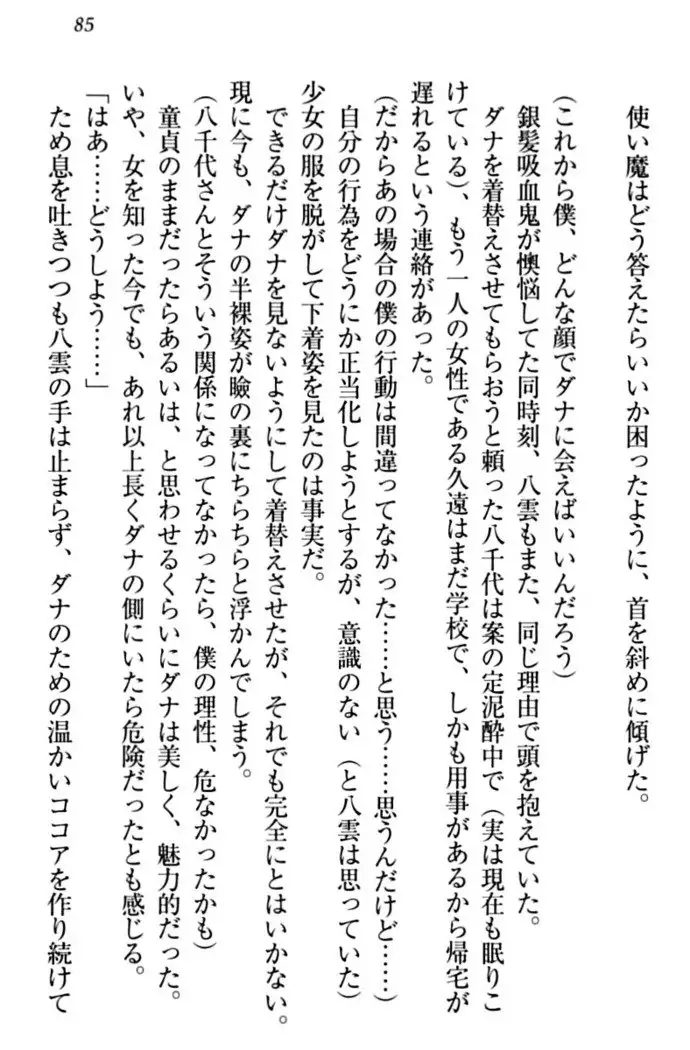 85
使い魔はどう答えたらいいか困ったように、首を斜めに傾げた。
(これから僕、どんな顔でダナに会えばいいんだろう)
銀髪吸血鬼が懊悩してた同時刻、八雲もまた、同じ理由で頭を抱えていた。
ダナを着替えさせてもらおうと頼った八千代は案の定泥酔中で(実は現在も眠りこ
けている)、もう一人の女性である久遠はまだ学校で、しかも用事があるから帰宅が
遅れるという連絡があった。
(だからあの場合の僕の行動は間違ってなかった……と思う……思うんだけど……)
自分の行為をどうにか正当化しようとするが、意識のない(と八雲は思っていた)
少女の服を脱がして下着姿を見たのは事実だ。
できるだけダナを見ないようにして着替えさせたが、それでも完全にとはいかない。
現に今も、ダナの半裸姿が瞼の裏にちらちらと浮かんでしまう。
(八千代さんとそういう関係になってなかったら、僕の理性、危なかったかも)
童貞のままだったらあるいは、と思わせるくらいにダナは美しく、魅力的だった。
いや、女を知った今でも、あれ以上長くダナの側にいたら危険だったとも感じる。
「はあ……どうしよう……」
ため息を吐きつつも八雲の手は止まらず、ダナのための温かいココアを作り続けて